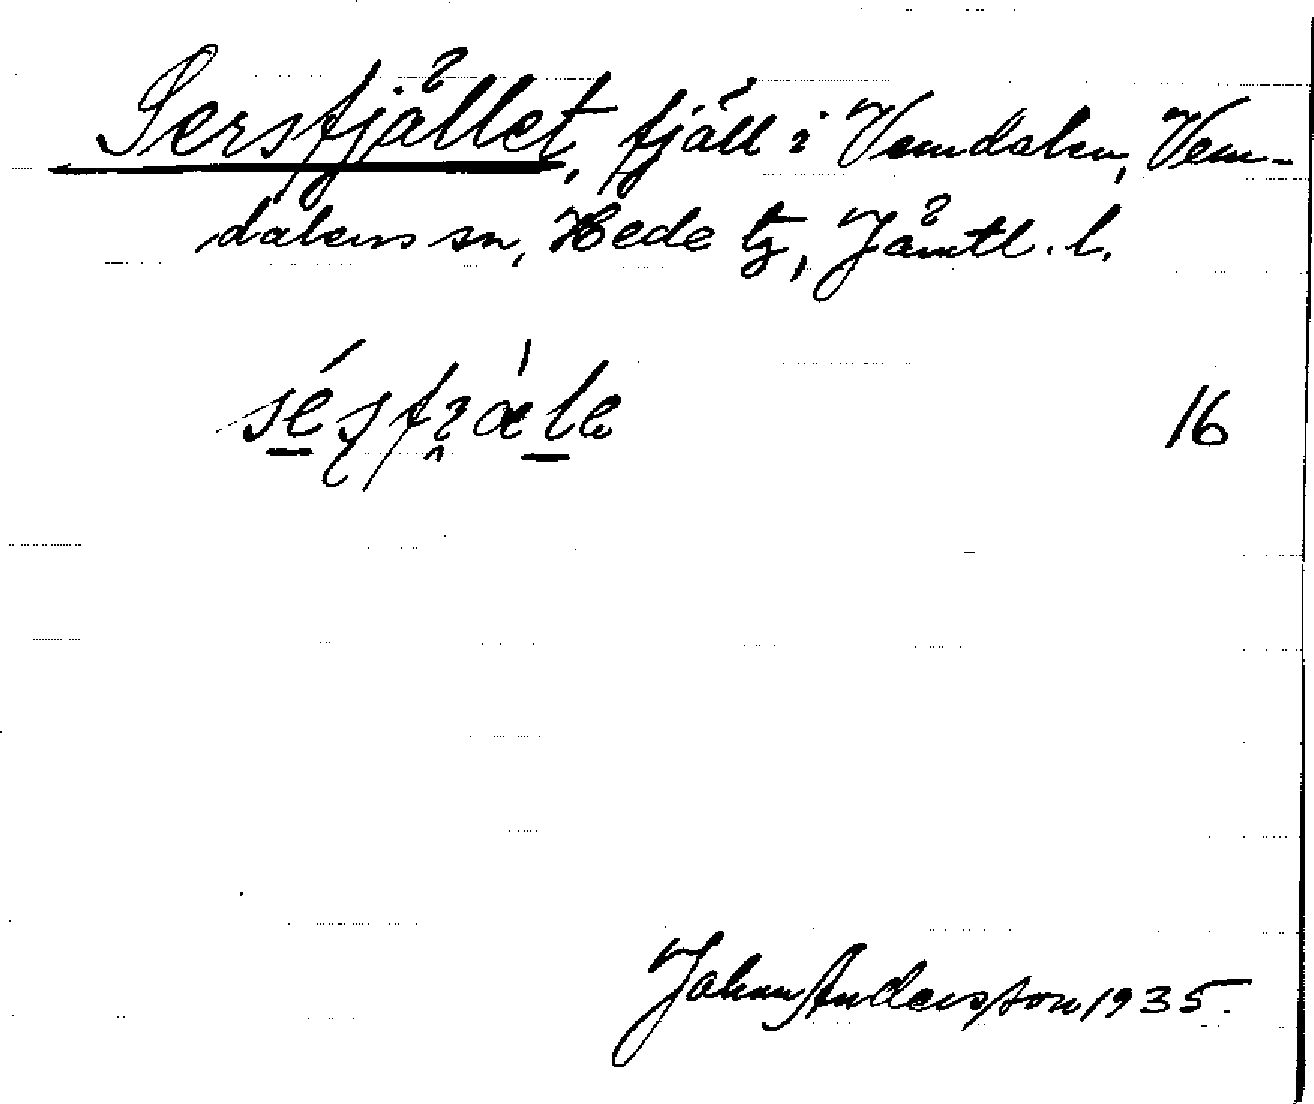 Sersfjället, fjäll i Vemdalen, Vem-
dalens sn, Hede tg, Jämtl. l.
16
Johan Andersson 1935.